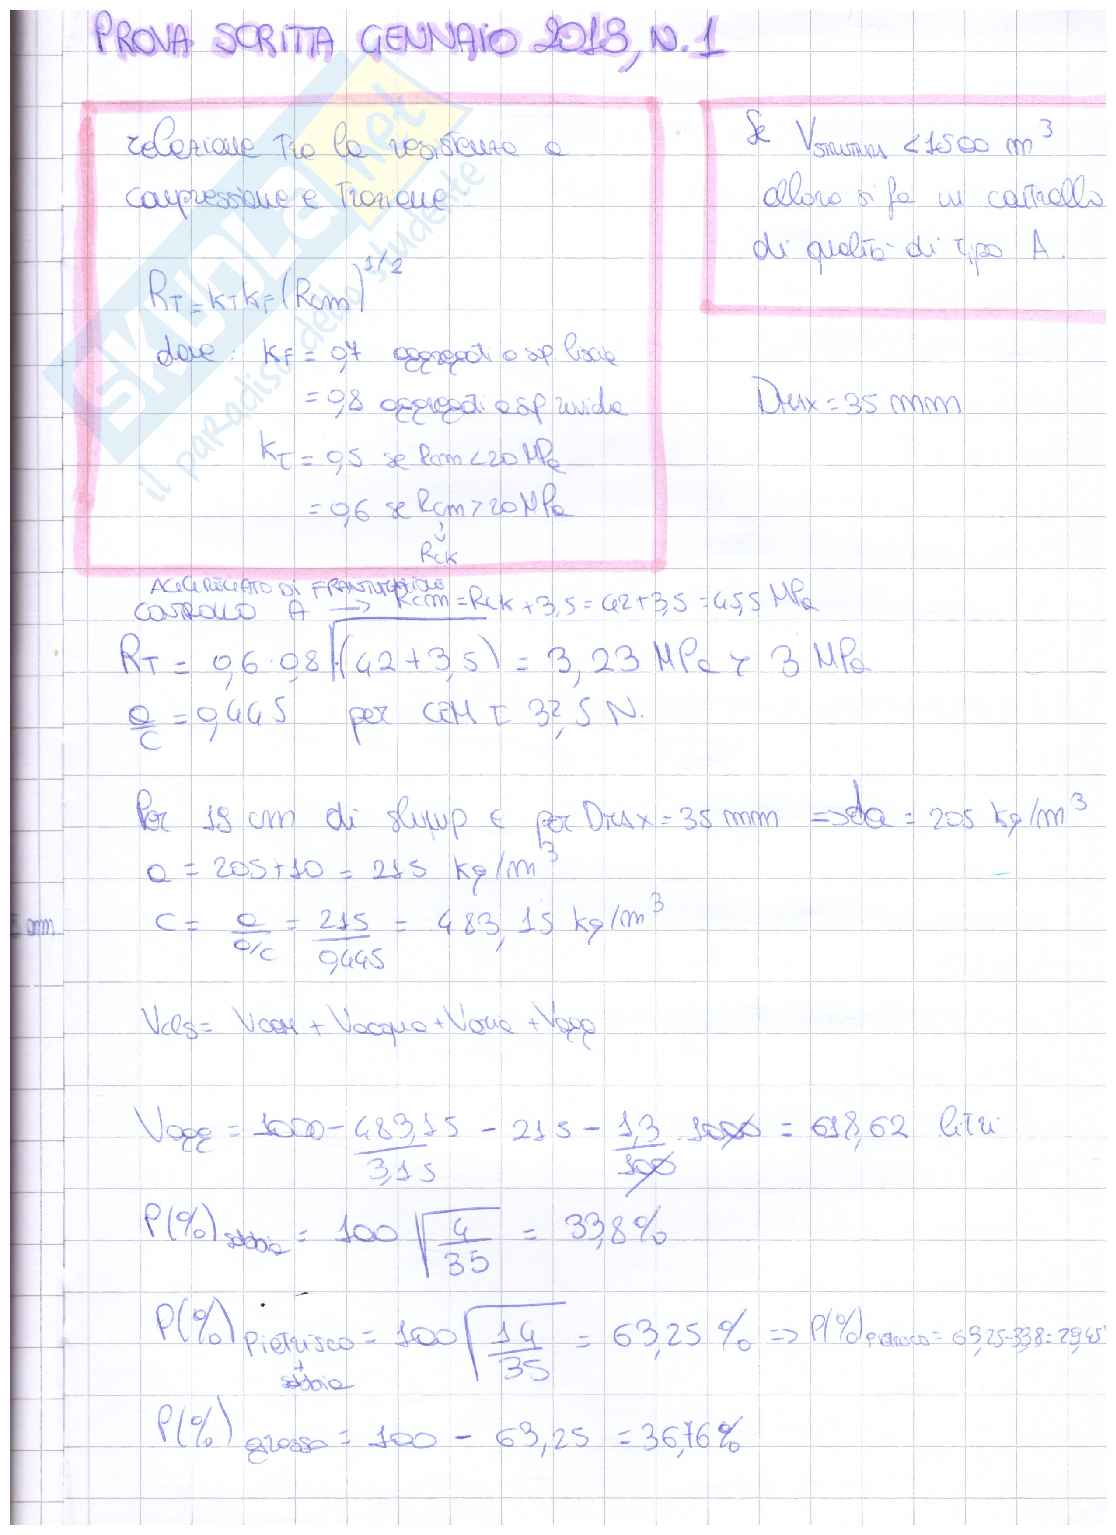 PROVA SCRITTA GENNAIO 2013, N.1
relazione tra la resistenza a
compressione e trazione
R_T = K_T K_F (Rcm)^1/2
dove: K_F = 0,7 aggregati a sup liscia
= 0,8 aggregati a sup ruvida
K_T = 0,5 se Rcm < 20 MPa
= 0,6 se Rcm > 20 MPa
↓
Rck
Se V_STRUTTURA < 1500 m³
allora si fa un controllo
di qualità di tipo A.
Dmax = 35 mm
AGGREGATO DI FRANTUMAZIONE
CONTROLLO A → Rcm = Rck + 3,5 = 42 + 3,5 = 45,5 MPa
R_T = 0,6 · 0,8 √(42 + 3,5) = 3,23 MPa > 3 MPa
a/c = 0,445 per CEM I 32,5 N.
Per 19 cm di slump e per Dmax = 35 mm => da = 205 kg/m³
a = 205 + 10 = 215 kg/m³
c = a / a/c = 215 / 0,445 = 483,15 kg/m³
mm
Vcls = Vcem + Vacqua + Varia + Vagg
Vagg = 1000 - 483,15 / 3,15 - 215 - 1,3 / 100 · 1000 = 618,62 litri
P(%) sabbia = 100 √4/35 = 33,8 %
P(%) pietrisco + sabbia = 100 √14/35 = 63,25 % => P(%) pietrisco = 63,25 - 33,8 = 29,45
P(%) grosso = 100 - 63,25 = 36,76 %
SKUOLA.net
il paradiso dello studente